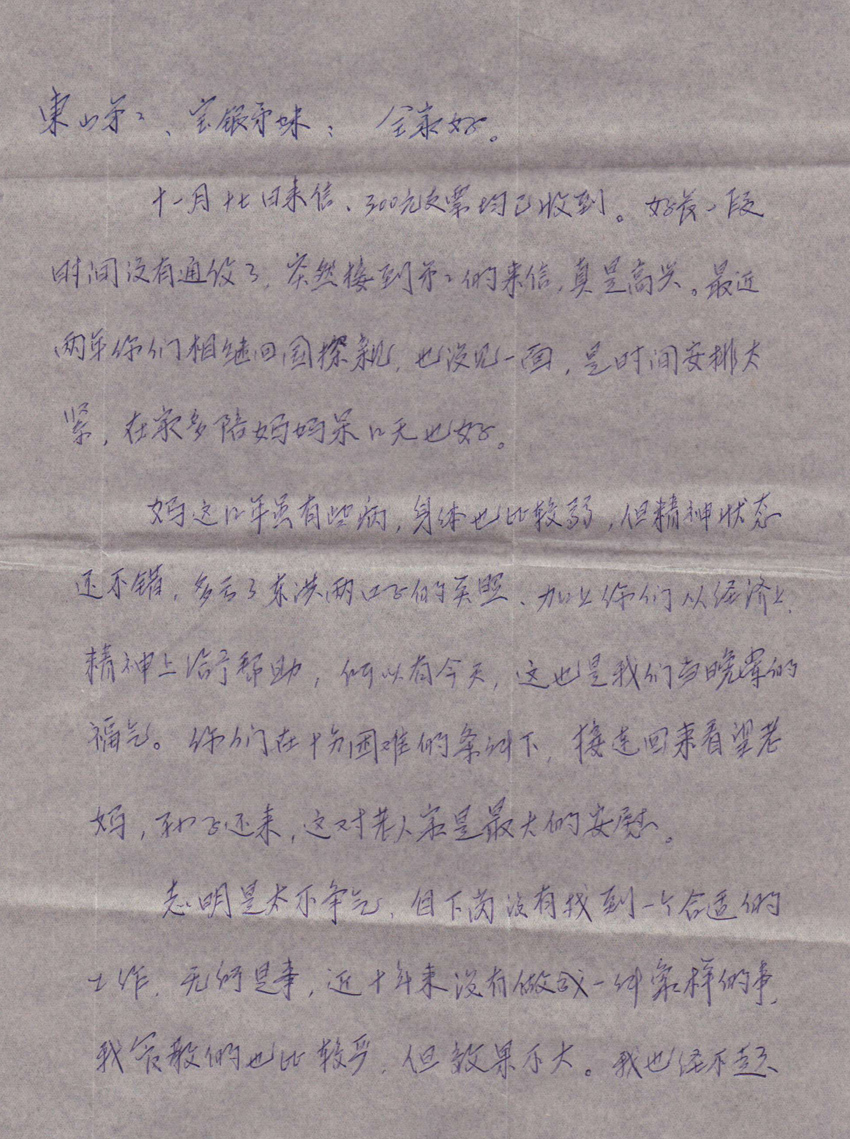 東山弟弟、宝银弟妹： 全家好。
十一月廿七日来信、300元支票均已收到。好长一段
时间没有通信了，突然接到弟弟的来信，真是高兴。最近
两年你们相继回国探亲，也没见一面，是时间安排太
紧，在家多陪妈妈呆几天也好。
妈这几年虽有些病，身体也比较弱，但精神状态
还不错，多亏了东洪两口子的关照、加上你们从经济上、
精神上给予帮助，何以有今天，这也是我们当晚辈的
福气。你们在十分困难的条件下，接连回来看望老
妈，孙子还来，这对老人家是最大的安慰。
志明是太不争气，但下岗没有找到一个合适的
工作，无所事事，近十年来没有做成一件象样的事，
我管教他的也比较严，但效果不大。我也经不起